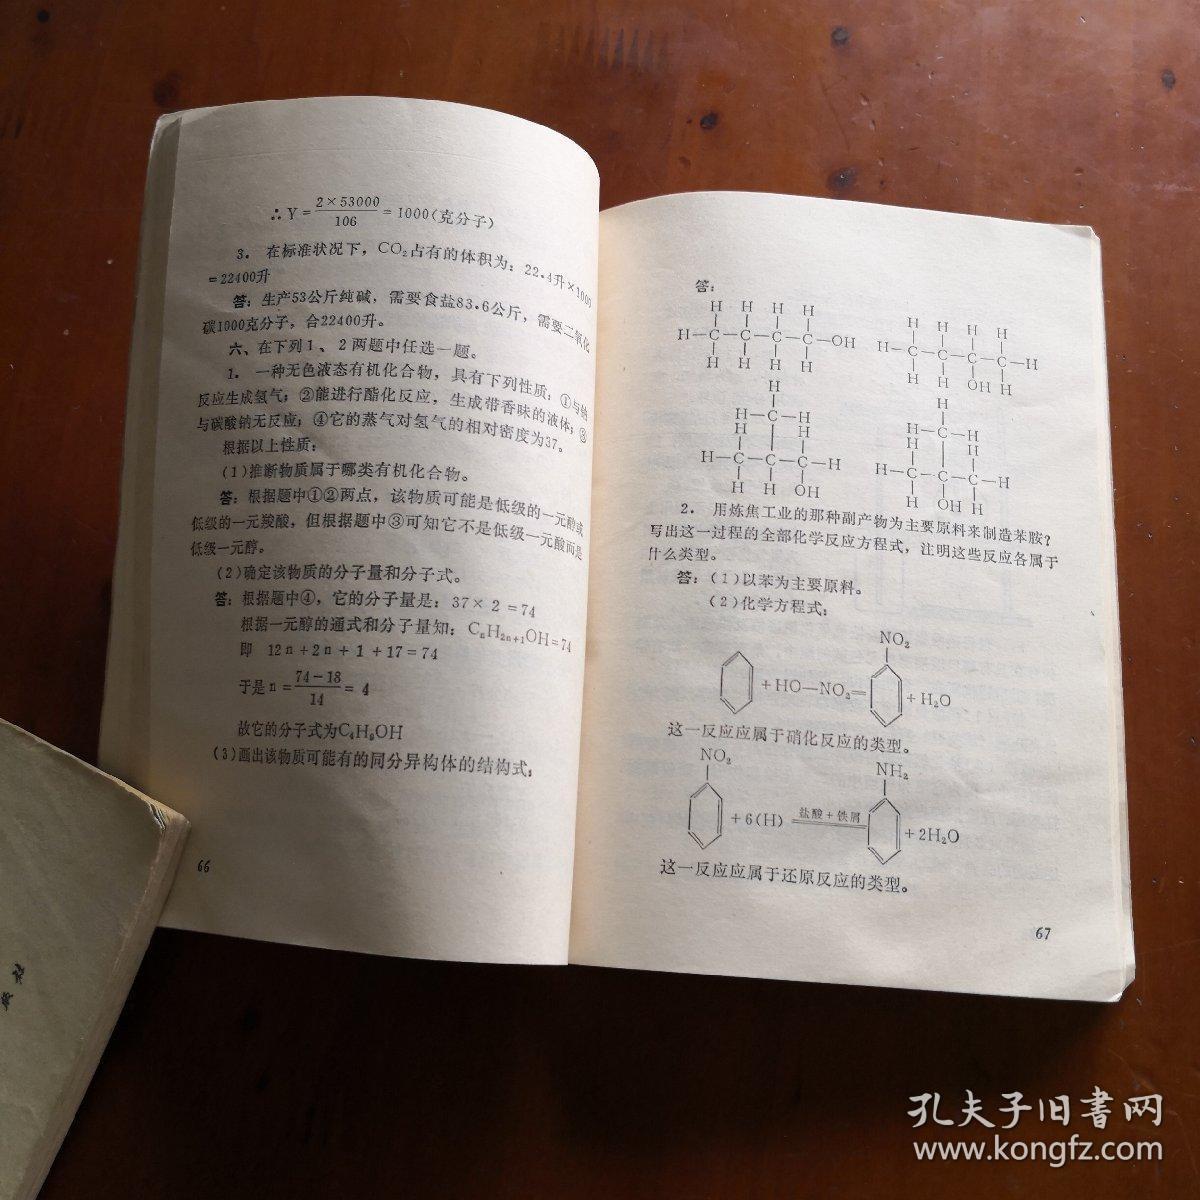 ∴Y=2×53000/106=1000(克分子)
3. 在标准状况下，CO₂占有的体积为：22.4升×1000
=22400升
答：生产53公斤纯碱，需要食盐83.6公斤，需要二氧化
碳1000克分子，合22400升。
六、在下列1、2两题中任选一题。
1. 一种无色液态有机化合物，具有下列性质：①与钠
反应生成氢气；②能进行酯化反应，生成带香味的液体；③
与碳酸钠无反应；④它的蒸气对氢气的相对密度为37。
根据以上性质：
(1)推断物质属于哪类有机化合物。
答：根据题中①②两点，该物质可能是低级的一元醇或
低级的一元羧酸，但根据题中③可知它不是低级一元酸而是
低级一元醇。
(2)确定该物质的分子量和分子式。
答：根据题中④，它的分子量是：37×2=74
根据一元醇的通式和分子量知：CₙH₂ₙ₊₁OH=74
即 12n+2n+1+17=74
于是n=74-18/14=4
故它的分子式为C₄H₉OH
(3)画出该物质可能有的同分异构体的结构式：
66
答：
H H H H
H—C—C—C—C—OH
H H H H
H H H H
H—C—C—C—C—H
H H OH H
H
H—C—H
H H
H—C—C—C—H
H H OH
H
H—C—H
H H
H—C—C—C—H
H OH H
2. 用炼焦工业的那种副产物为主要原料来制造苯胺？
写出这一过程的全部化学反应方程式，注明这些反应各属于
什么类型。
答：(1)以苯为主要原料。
(2)化学方程式：
NO₂
+HO—NO₂= +H₂O
这一反应应属于硝化反应的类型。
NO₂ NH₂
+6(H) 盐酸+铁屑 +2H₂O
这一反应应属于还原反应的类型。
67
孔夫子旧书网
www.kongfz.com